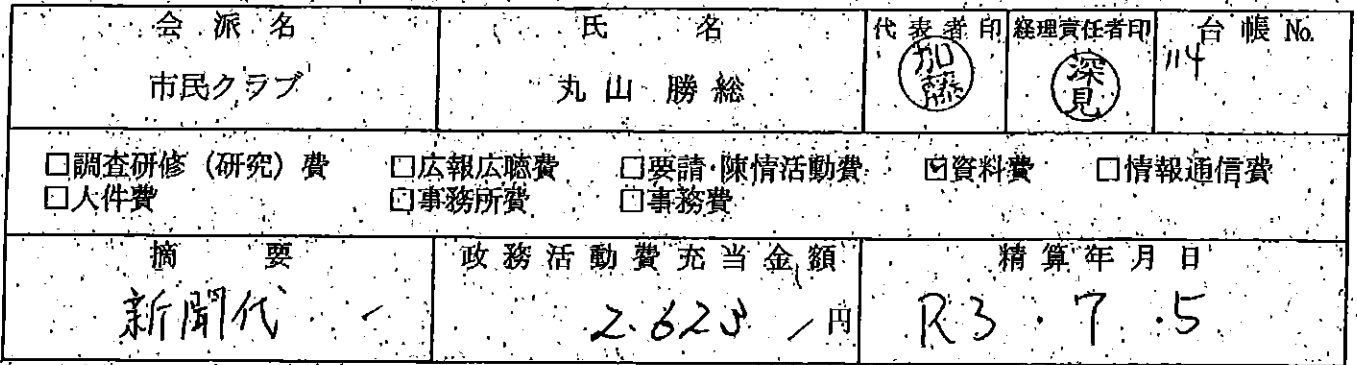 会派名 氏名 代表者印 経理責任者印 台帳No.
市民クラブ 丸山勝総 加藤 深見 114
□調査研修（研究）費 □広報広聴費 □要請・陳情活動費 ☑資料費 □情報通信費
□人件費 □事務所費 □事務費
摘要 政務活動費充当金額 精算年月日
新聞代 2.623円 R3.7.5